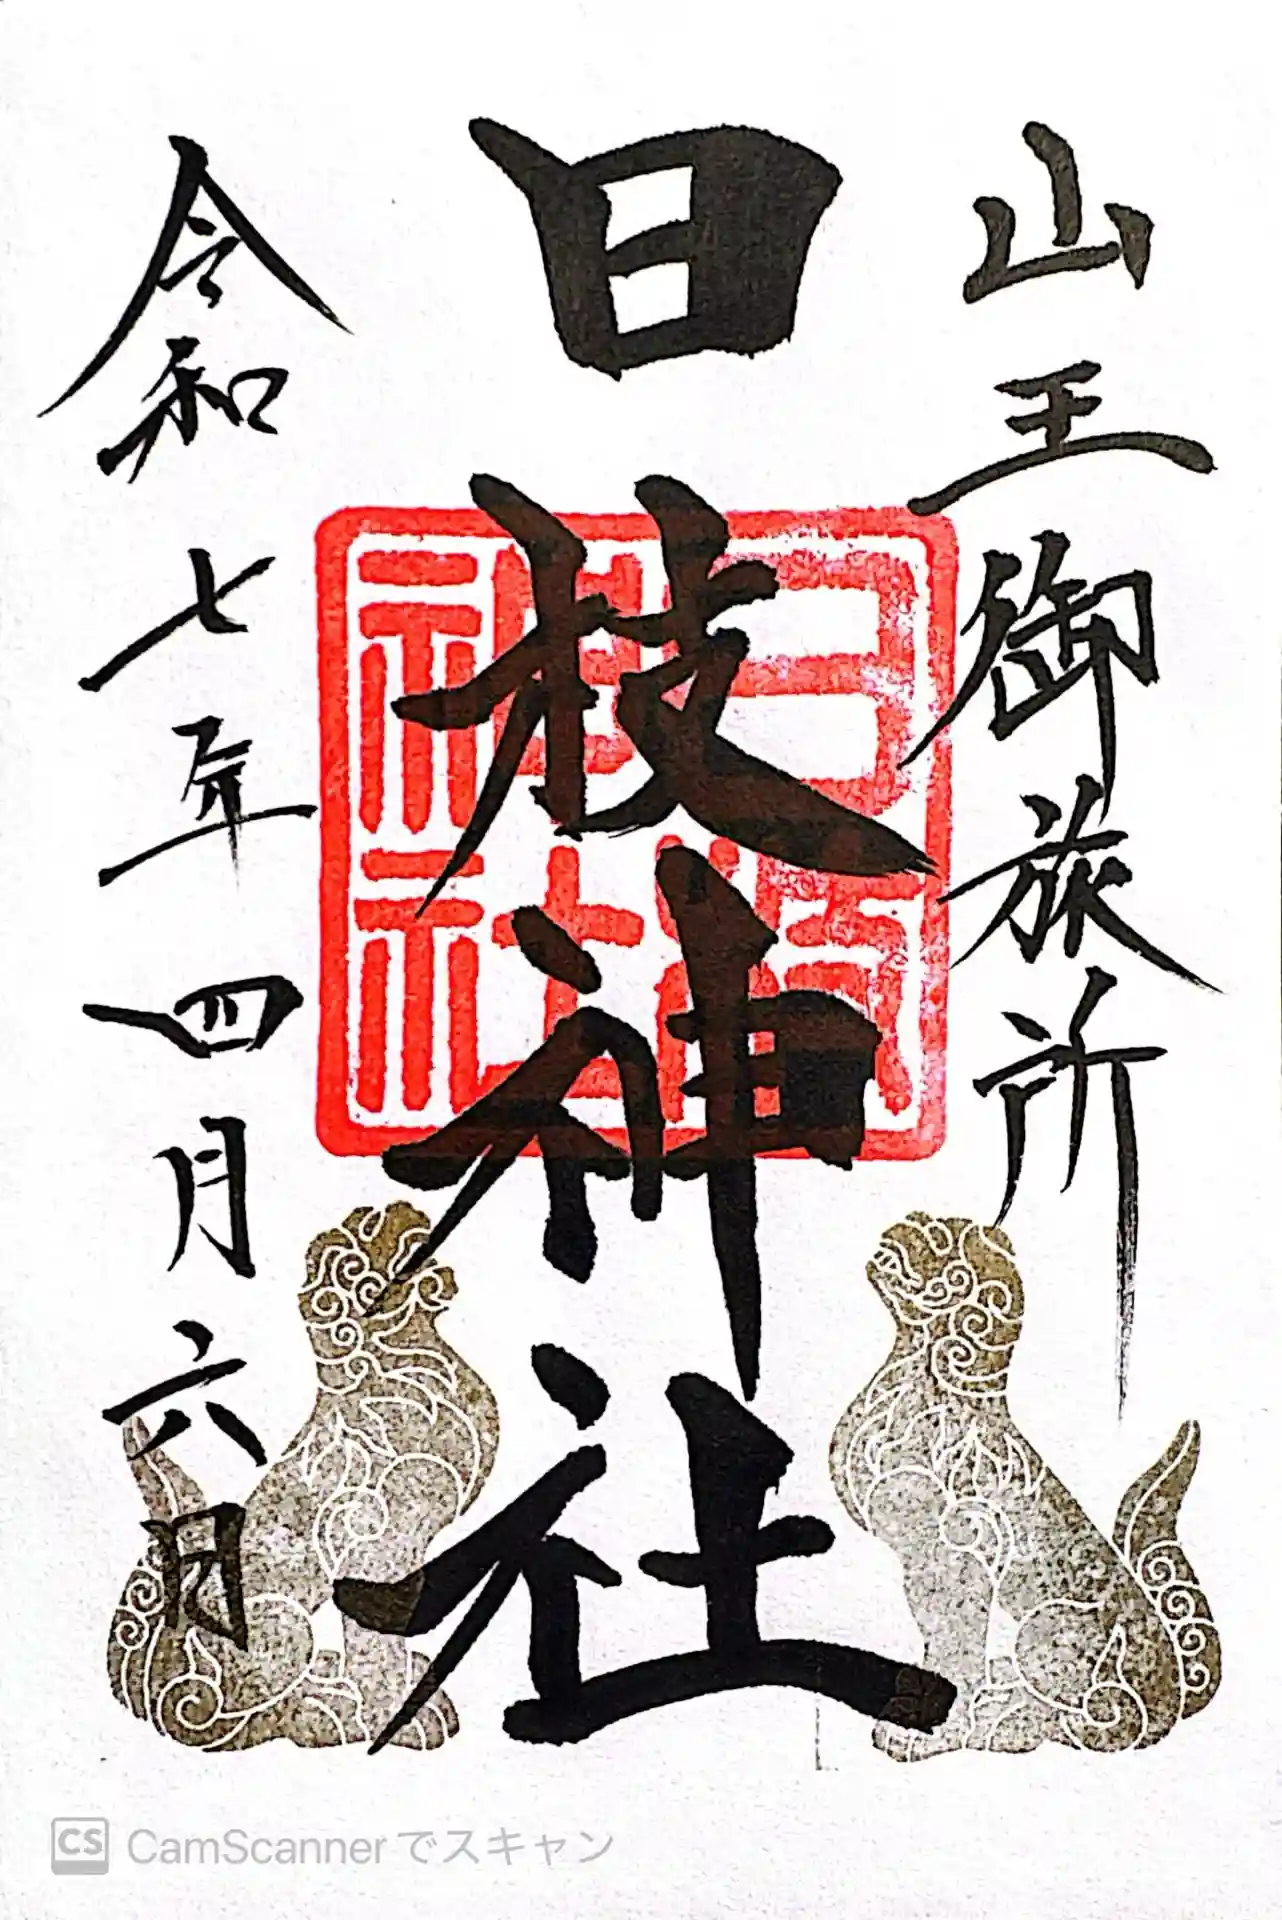 山王御旅所
日枝神社
令和七年四月六日
CS CamScannerでスキャン